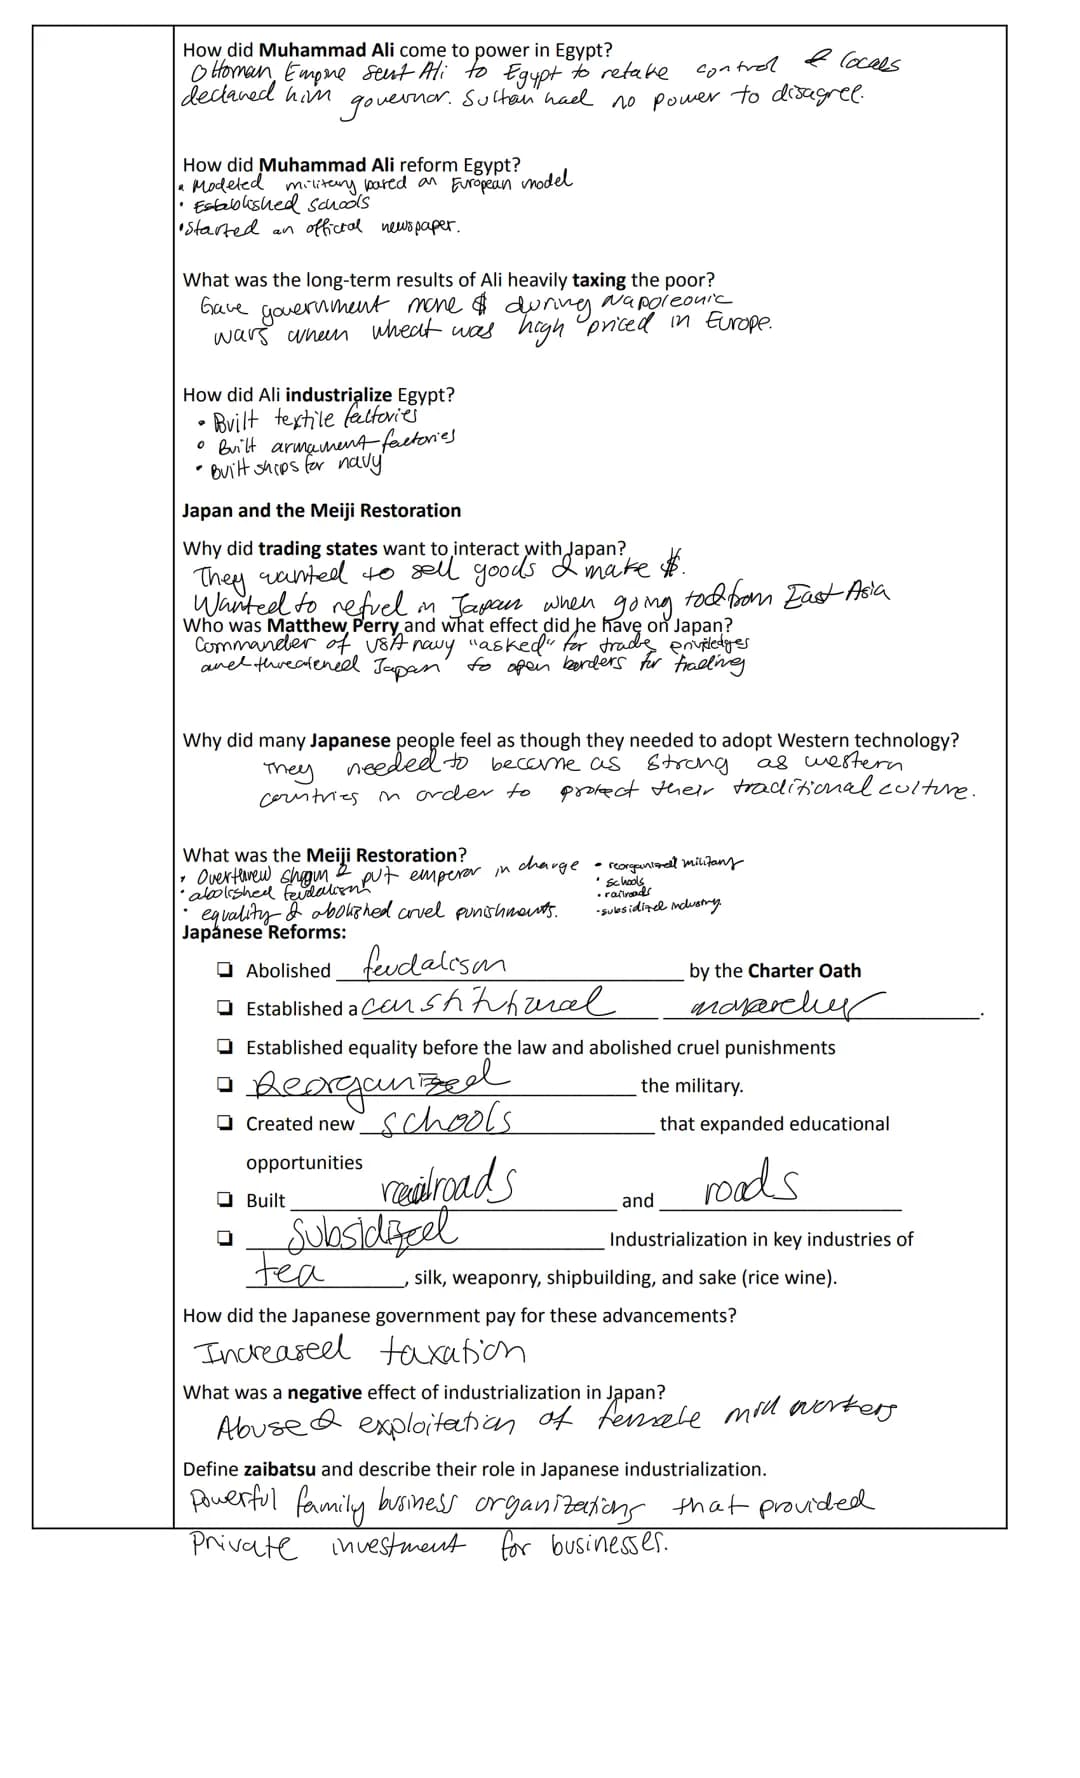 How did Muhammad Ali come to power in Egypt?
Ottoman Empire sent Ali to Egypt to retake control & locals
declared him governor. Sultan had no power to disagree.
How did Muhammad Ali reform Egypt?
• Modeled military based on European model
• Established schools
• Started an official newspaper.
What was the long-term results of Ali heavily taxing the poor?
Gave government more $ during Napoleonic
wars when wheat was high priced in Europe.
How did Ali industrialize Egypt?
• Built textile factories
• Built armament factories
• Built ships for navy
Japan and the Meiji Restoration
Why did trading states want to interact with Japan?
They wanted to sell goods & make $.
Wanted to refuel in Japan when going to & from East Asia
Who was Matthew Perry and what effect did he have on Japan?
Commander of USA navy "asked" for trade priviledges
and threatened Japan to open borders for trading
Why did many Japanese people feel as though they needed to adopt Western technology?
They needed to become as strong as western
countries in order to protect their traditional culture.
What was the Meiji Restoration?
• Overthrew shogun & put emperor in charge
• abolished feudalism
• equality & abolished cruel punishments.
• reorganized military
• schools
• railroads
• subsidized industry.
Japanese Reforms:
❑ Abolished feudalism by the Charter Oath
❑ Established a constitutional monarchy.
❑ Established equality before the law and abolished cruel punishments
❑ Reorganized the military.
❑ Created new schools that expanded educational
opportunities
❑ Built railroads and roads
❑ Subsidized Industrialization in key industries of
tea, silk, weaponry, shipbuilding, and sake (rice wine).
How did the Japanese government pay for these advancements?
Increased taxation
What was a negative effect of industrialization in Japan?
Abuse & exploitation of female mill workers
Define zaibatsu and describe their role in Japanese industrialization.
Powerful family business organizations that provided
Private investment for businesses.